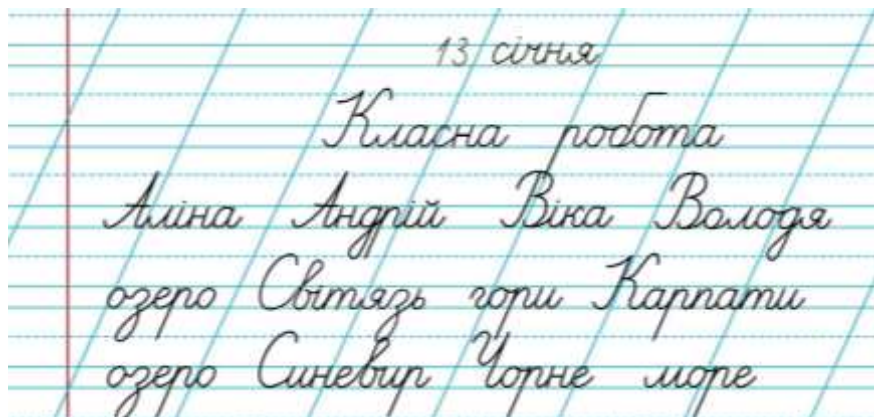 13 січня
Класна робота
Аліна Андрій Віка Володя
озеро Світязь гори Карпати
озеро Синевир Чорне море